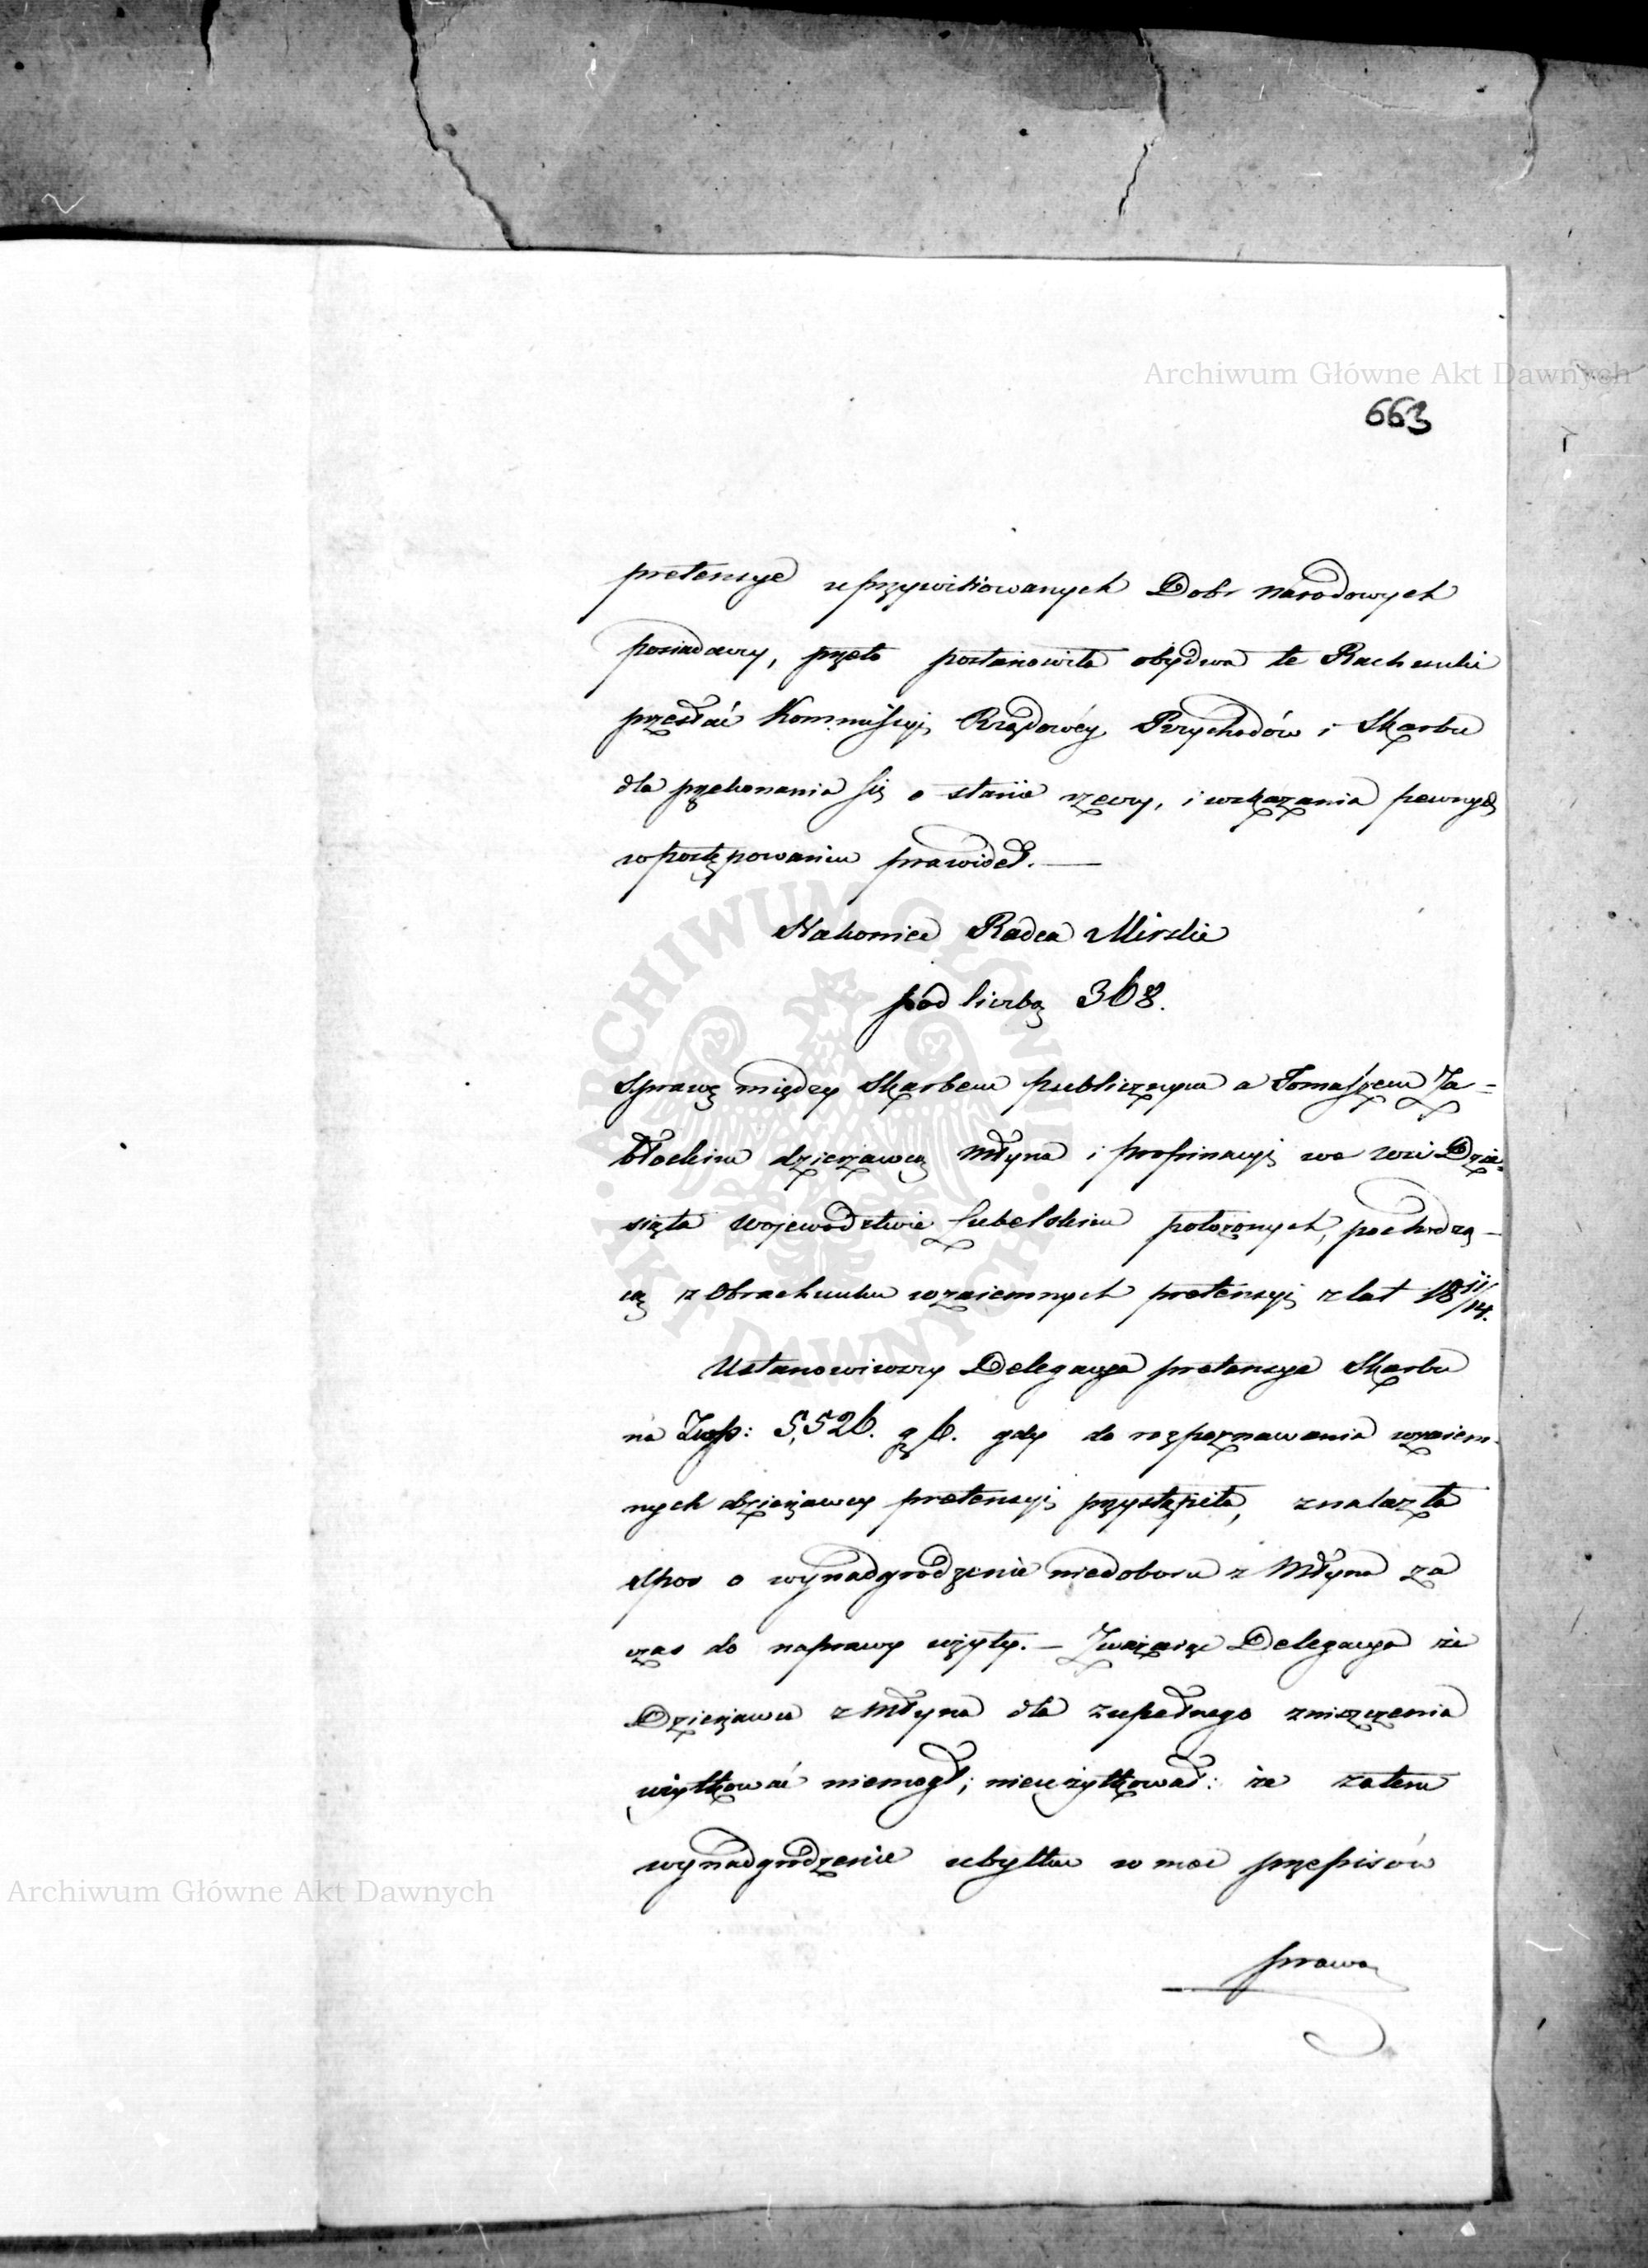 Archiwum Główne Akt Dawnych
663
pretensye uprzywiliowanych Dobr Narodowych
posiadaczy, przeto postanowiła obydwa te Rachunki
przesłać Kommissyi Rządowéy Przychodów i Skarbu
dla przekonania się o stanie rzeczy, i wskazania pewnych
w postępowaniu prawideł. —
Nakoniec Radca Mirski
pod liczbą 368.
Sprawę między Skarbem publicznym a Tomaszem Za=
błockim dzierżawcą Młyna i propinacyi we wsi Dzie=
siąta Wojewodztwie Lubelskim położonych, pochodzą—
cą z Obrachunku wzaiemnych pretensyi z lat 18 11/14.
Ustanowiwszy Delegacya pretensye Skarbu
na Złp: 5,526. g 6. gdy do rozpoznawania wzaiem-
nych dzierżawcy pretensyi przystąpiła, znalazła
spor o wynadgrodzenie niedoboru z Młyna za
czas do naprawy użyty. — Zważaiąc Delegacya że
Dzierżawca z Młyna dla zupełnego zniszczenia
użytkować niemogł; nieużytkował: że zatem
wynadgrodzenie ubytku w moc przepisów
prawa
ARCHIWUM GŁÓWNE AKT DAWNYCH
Archiwum Główne Akt Dawnych